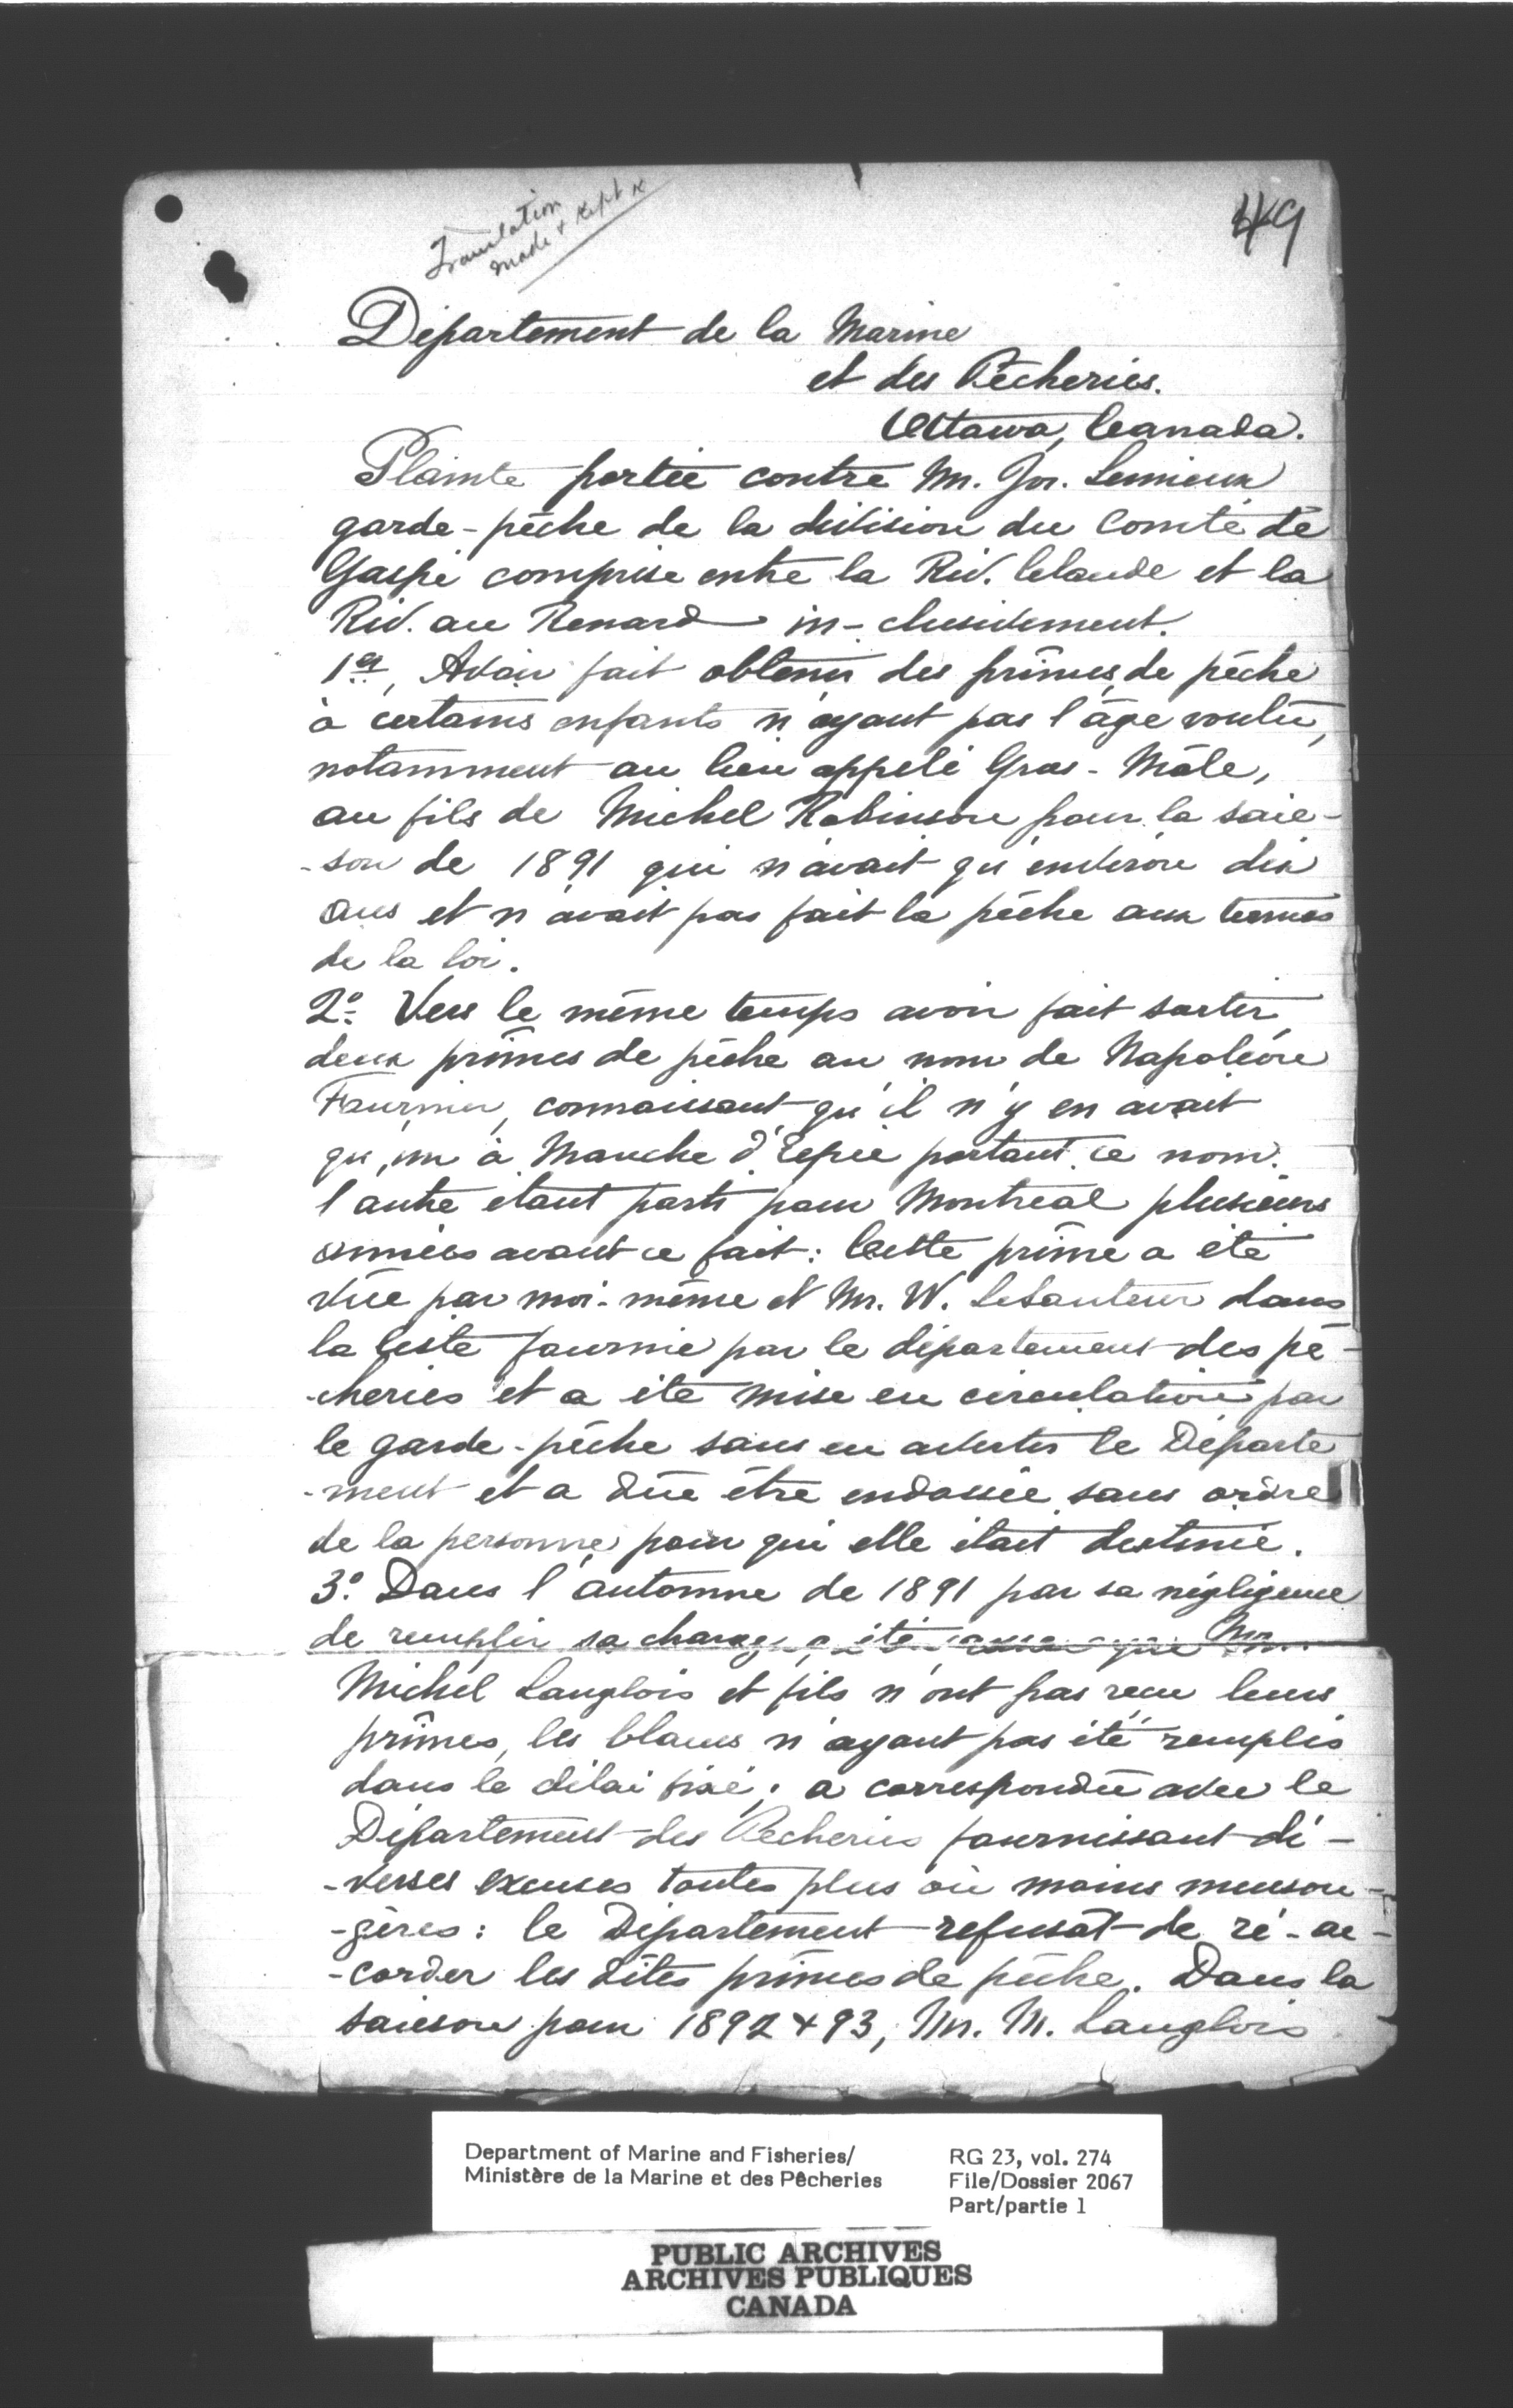 Translation
made & kept
49
Département de la Marine
et des Pêcheries.
Ottawa, Canada.
Plainte portée contre M. Jos. Lemieux
garde-pêche de la division du Comté de
Gaspé comprise entre la Riv. Claude et la
Riv. au Renard in-clusivement.
1er, Avoir fait obtenir des prîmes de pêche
à certains enfants n'ayant pas l'âge voulu,
notamment au lieu appelé Gros-Mâle,
au fils de Michel Robinson pour la sai-
-son de 1891 qui n'avait qu'environ dix
ans et n'avait pas fait la pêche aux termes
de la loi.
2o Vers le même temps avoir fait sortir
deux prîmes de pêche au nom de Napoléon
Fournier, connaissant qu'il n'y en avait
qu'un à Manche d'Epée portant ce nom.
l'autre étant parti pour Montréal plusieurs
années avant ce fait: Cette prîme a été
vûe par moi-même et Mr. W. LeSauteur dans
la liste fournie par le département des pê-
-cheries et a été mise en circulation par
le garde-pêche sans en avertir le Départe
-ment et a dûe être endossée sans ordre
de la personne pour qui elle était destinée.
3o Dans l'automne de 1891 par sa négligence
de remplir sa charge, a été cause que Mr.
Michel Langlois et fils n'ont pas recu leurs
prîmes, les blancs n'ayant pas été remplis
dans le délai fixé; a correspondû avec le
Département des Pêcheries fournissant di-
-verses excuses toutes plus où moins menson-
-gères: le Département refusât de ré-ac-
-corder les dîtes prîmes de pêche. Dans la
saison pour 1892 & 93, Mr. M. Langlois
Department of Marine and Fisheries/
Ministère de la Marine et des Pêcheries
RG 23, vol. 274
File/Dossier 2067
Part/partie 1
PUBLIC ARCHIVES
ARCHIVES PUBLIQUES
CANADA